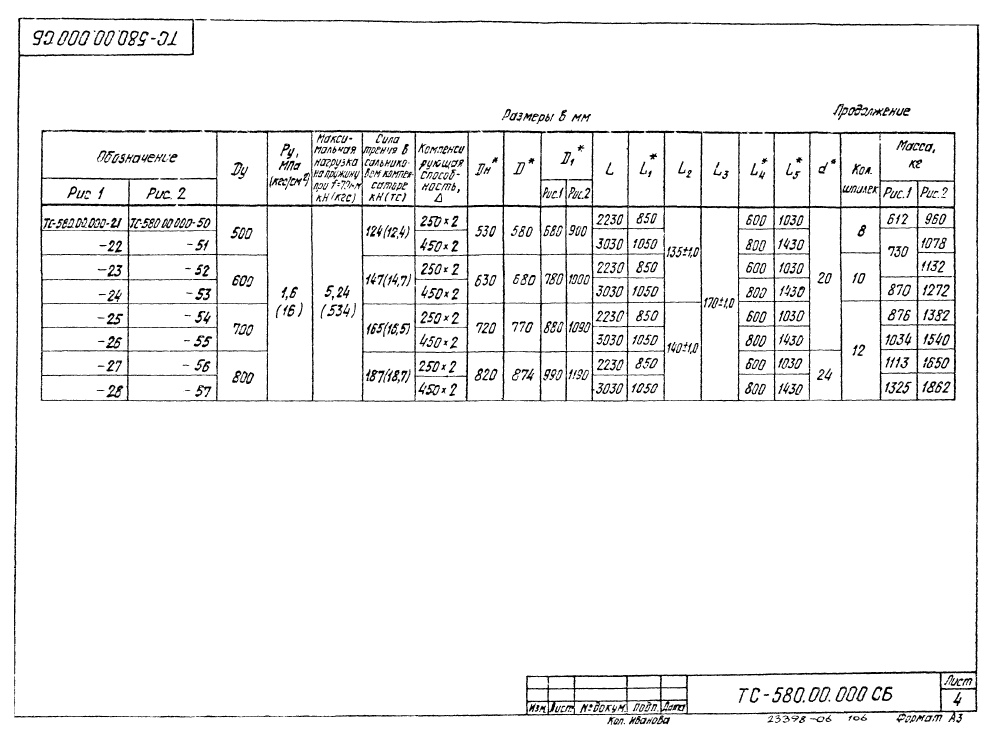 ТС-580.00.000.СБ
Размеры в мм
Продолжение
Обозначение Dу Ру, МПа (кгс/см²) Макси-мальная нагрузка на пружину при f=70мм кН (кгс) Сила трения в сальнико-вом компен-саторе кН (тс) Компенси рующая способ-ность, Δ Dн* D* D₁* L L₁* L₂ L₃ L₄* L₅* d* Кол. шпилек Масса, кг
Рис. 1 Рис. 2 Рис.1 Рис.2 Рис.1 Рис.2
ТС-580.00.000-21 ТС-580.00.000-50 500 1,6 (16) 5,24 (534) 124(12,4) 250×2 530 580 680 900 2230 850 135±1,0 170±1,0 600 1030 20 8 612 960
-22 -51 450×2 3030 1050 800 1430 730 1078
-23 -52 600 147(14,7) 250×2 630 680 780 1000 2230 850 600 1030 10 1132
-24 -53 450×2 3030 1050 800 1430 870 1272
-25 -54 700 165(16,5) 250×2 720 770 880 1090 2230 850 140±1,0 600 1030 12 876 1382
-26 -55 450×2 3030 1050 800 1430 1034 1540
-27 -56 800 187(18,7) 250×2 820 874 990 1190 2230 850 600 1030 24 1113 1650
-28 -57 450×2 3030 1050 800 1430 1325 1862
ТС-580.00.000 СБ
Лист
4
Изм. Лист № докум. Подп. Дата
Коп. Иванова 23398-06 106 Формат А3